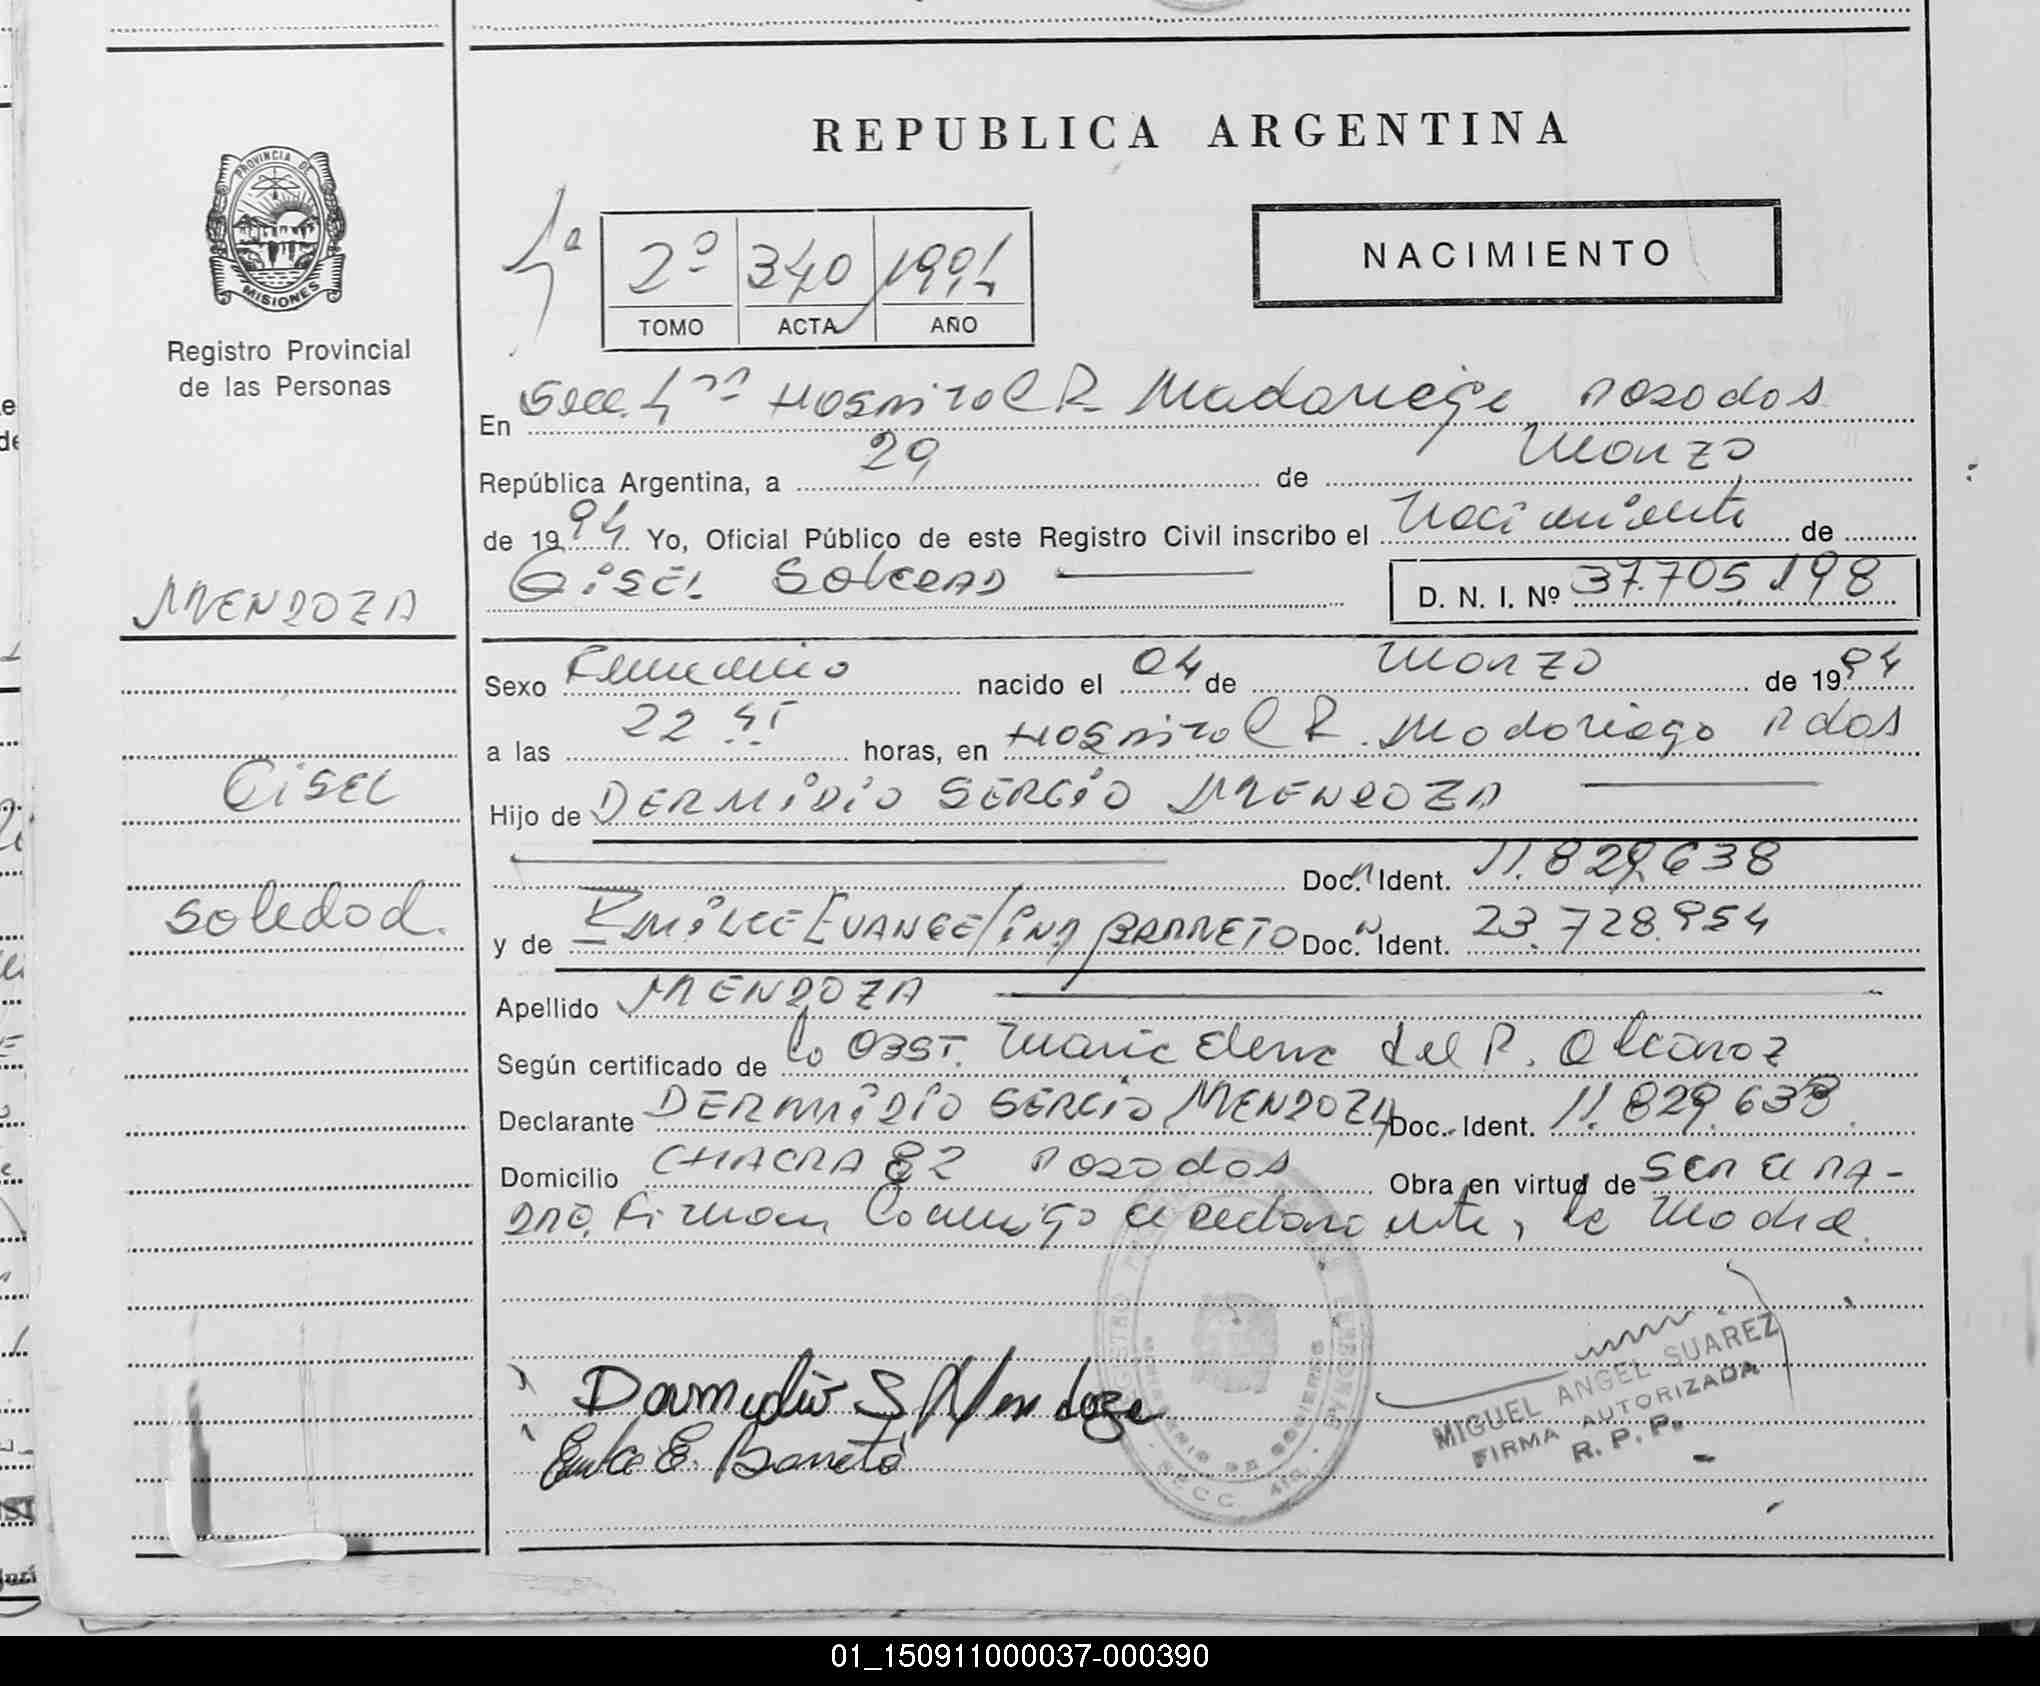 REPUBLICA ARGENTINA
PROVINCIA DE
MISIONES
Registro Provincial
de las Personas
4ª
2º 340 1994
TOMO ACTA AÑO
NACIMIENTO
En Secc. 4ta Hospital R. Madariaga Posadas
República Argentina, a 29 de Marzo
de 1994 Yo, Oficial Público de este Registro Civil inscribo el Nacimiento de
GISEL SOLEDAD D. N. I. Nº 37.705.198
MENDOZA
Gisel
Soledad.
Sexo Femenino nacido el 04 de Marzo de 1994
a las 22 horas, en Hospital R. Madariaga Pdas
Hijo de DERMIDIO SERGIO MENDOZA
Doc. Ident. 11.829.638
y de EMILCE EVANGELINA BARRETO Doc. Ident. 23.728.954
Apellido MENDOZA
Según certificado de la OBST. Maria Elena del R. Alcaraz
Declarante DERMIDIO SERGIO MENDOZA Doc. Ident. 11.829.638
Domicilio CHACRA 82 Posadas Obra en virtud de SER EL PA-
DRE, Firman Conmigo el declarante, la Madre.
Dermidio S Mendoza
Emilce E. Barreto
MIGUEL ANGEL SUAREZ
FIRMA AUTORIZADA
R. P. P.
01_150911000037-000390